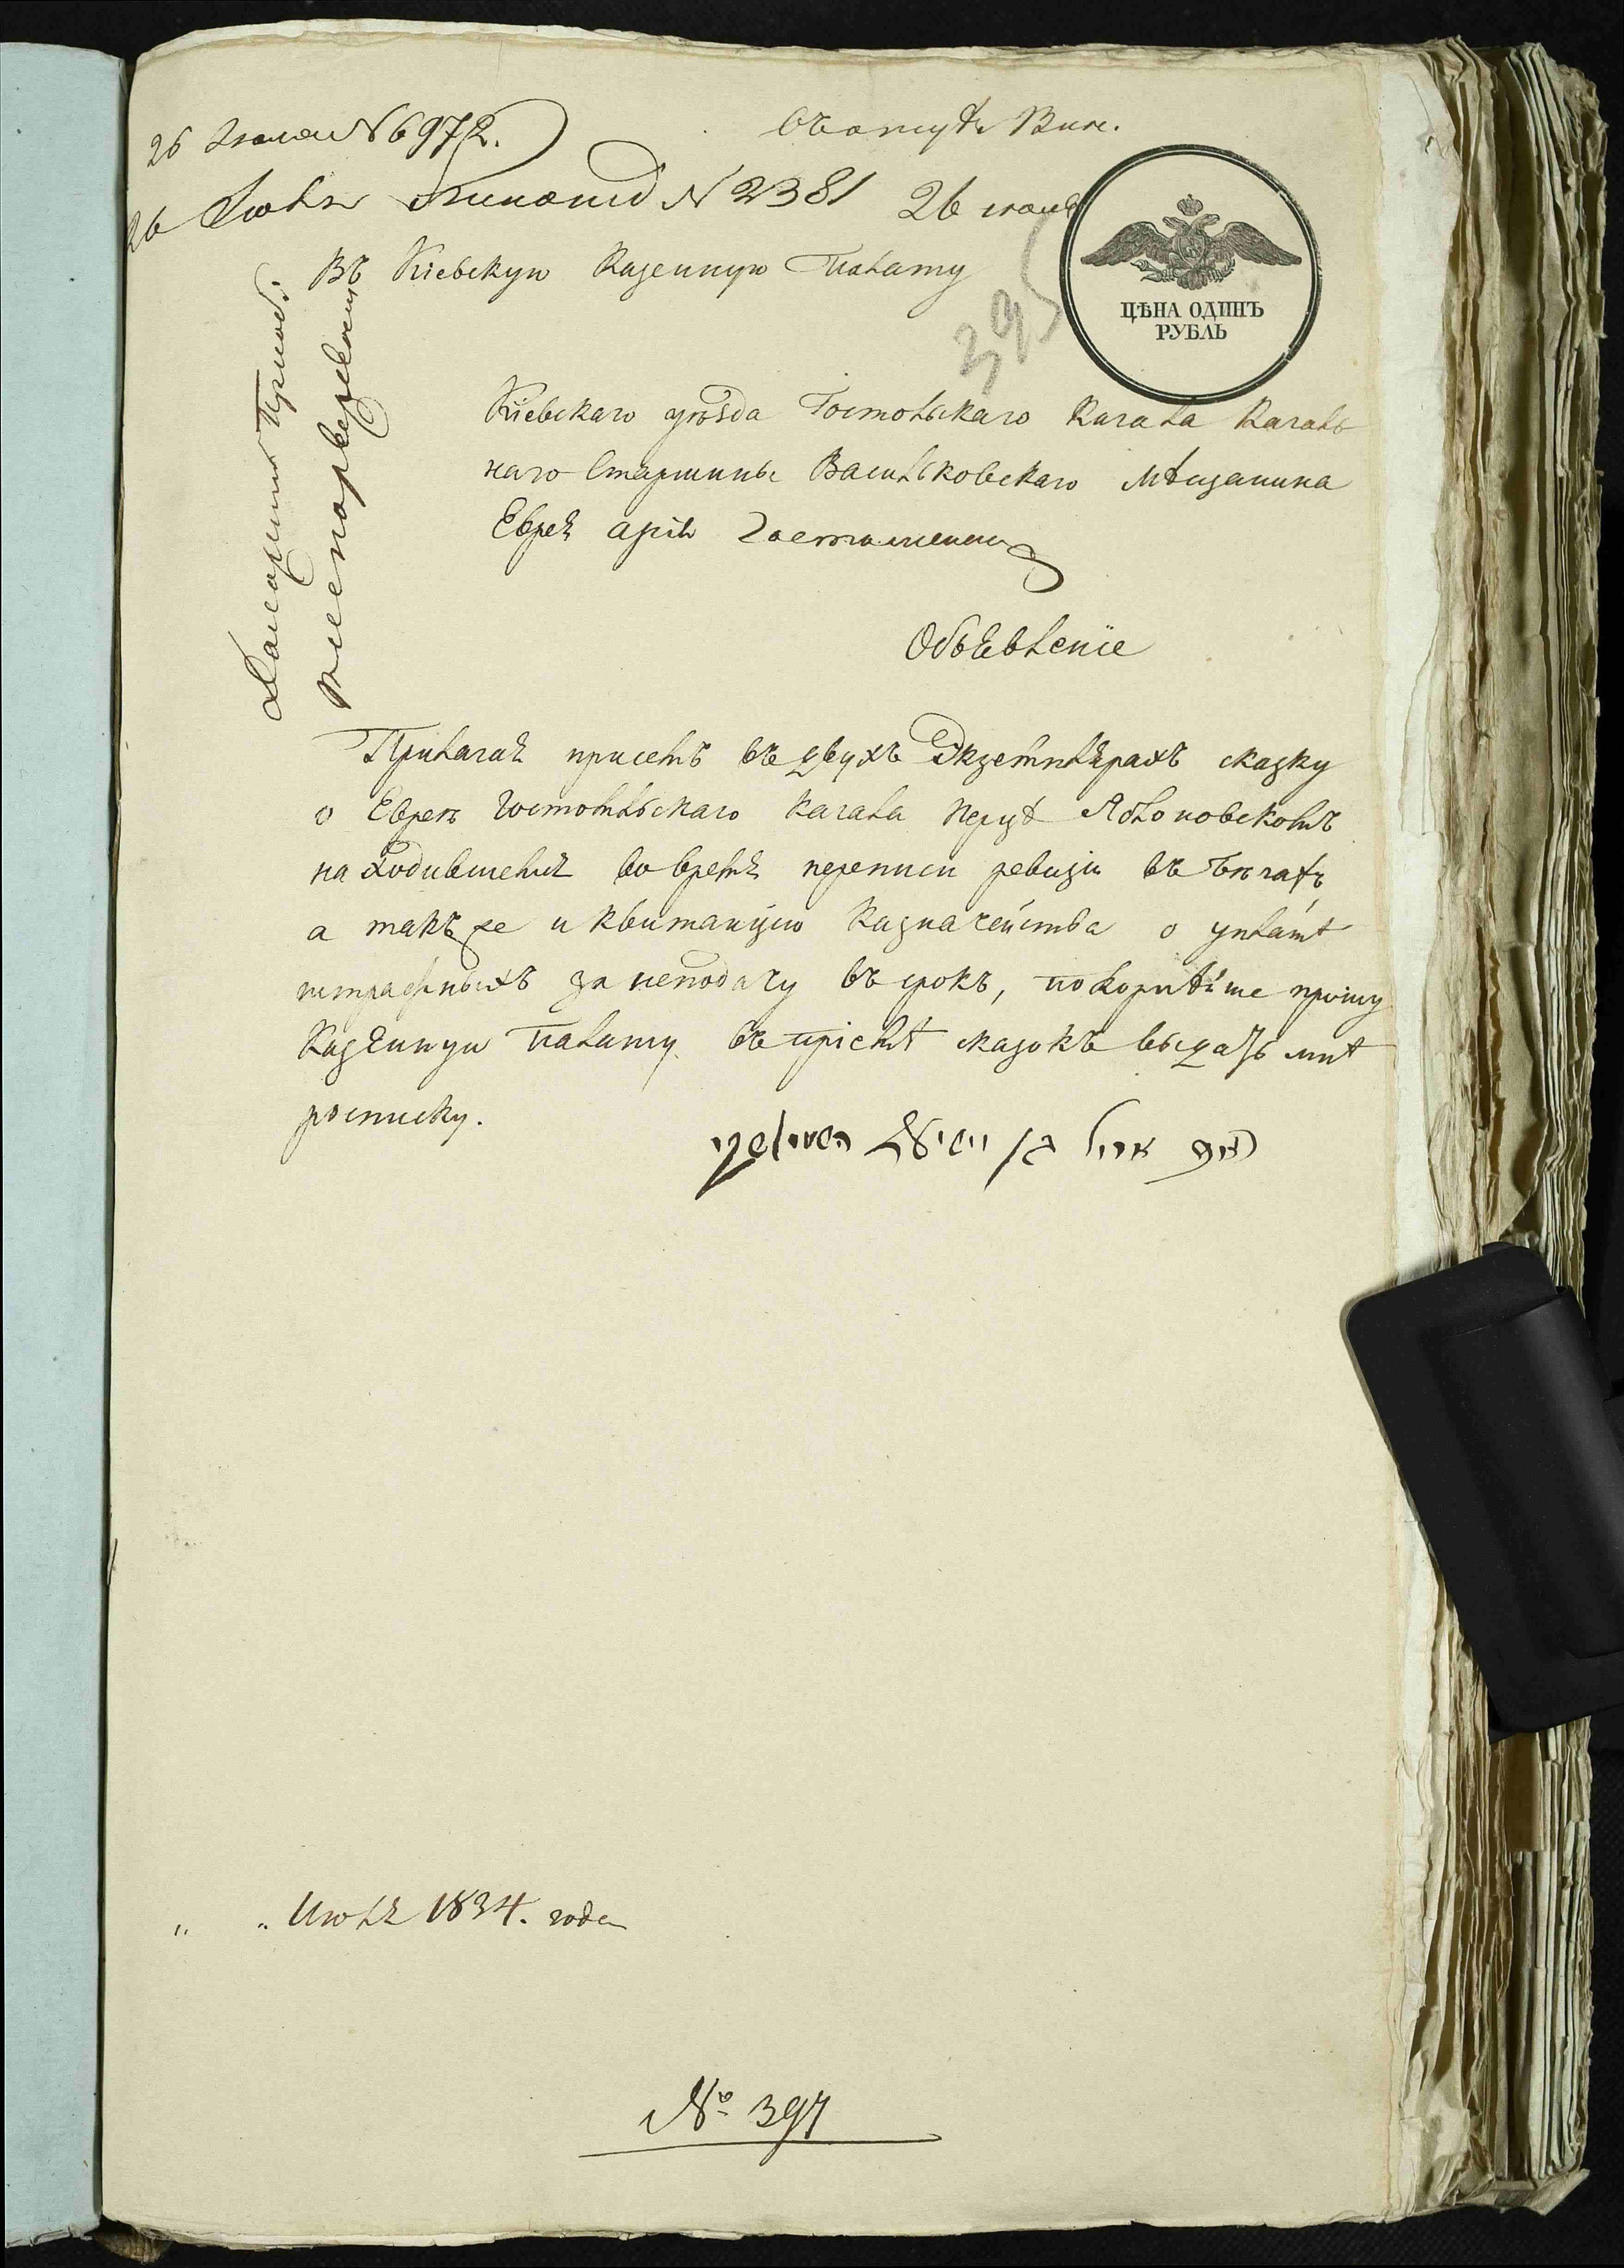 26 Июля № 6972.
26 Июля № 2381 26 июля
Въ Кіевскую Казенную Палату
395
ЦѢНА ОДИНЪ
РУБЛЬ
Кіевскаго уѣзда Гостомльскаго Кагала Кагаль
наго Старшины Васильковскаго Мѣщанина
Еврея
Объявленіе
Прилагая присемъ въ двухъ Экземплярахъ сказку
о Еврее Гостомльскаго Кагала Перцѣ Яблоновскомъ
находившемся во время переписи ревизіи въ бѣгахъ
а такъ же и квитанцію Казначейства о уплатѣ
штрафныхъ за неподачу въ срокъ, покорнѣйше прошу
Казенную Палату въ пріемѣ сказокъ выдать мнѣ
росписку.
Июля 1834. года
№ 397